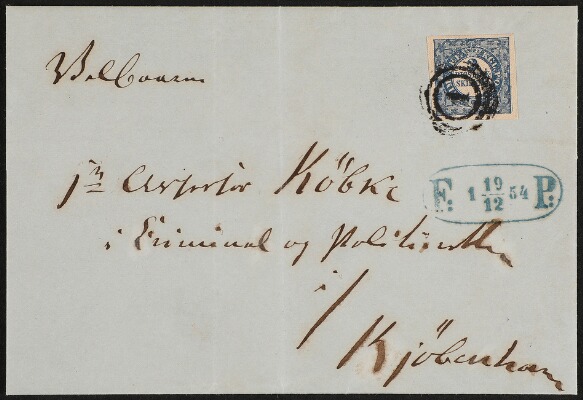 Velbaarne
Hr Assessor Købke
i Criminal og Politiretten
i/
Kjöbenhavn
F: 1 19/12 54 P:
1